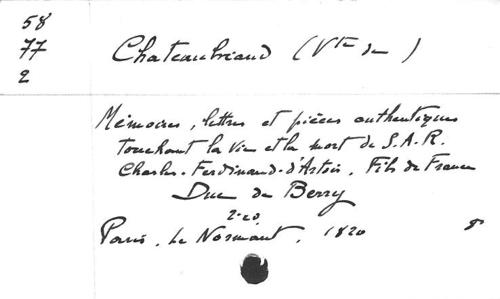 58
77
2
Chateaubriand (Vte de)
Mémoires, lettres et pièces authentiques
touchant la vie et la mort de S.A.R.
Charles-Ferdinand-d'Artois, Fils de France
Duc de Berry
2e éd.
Paris, Le Normant, 1820 8°